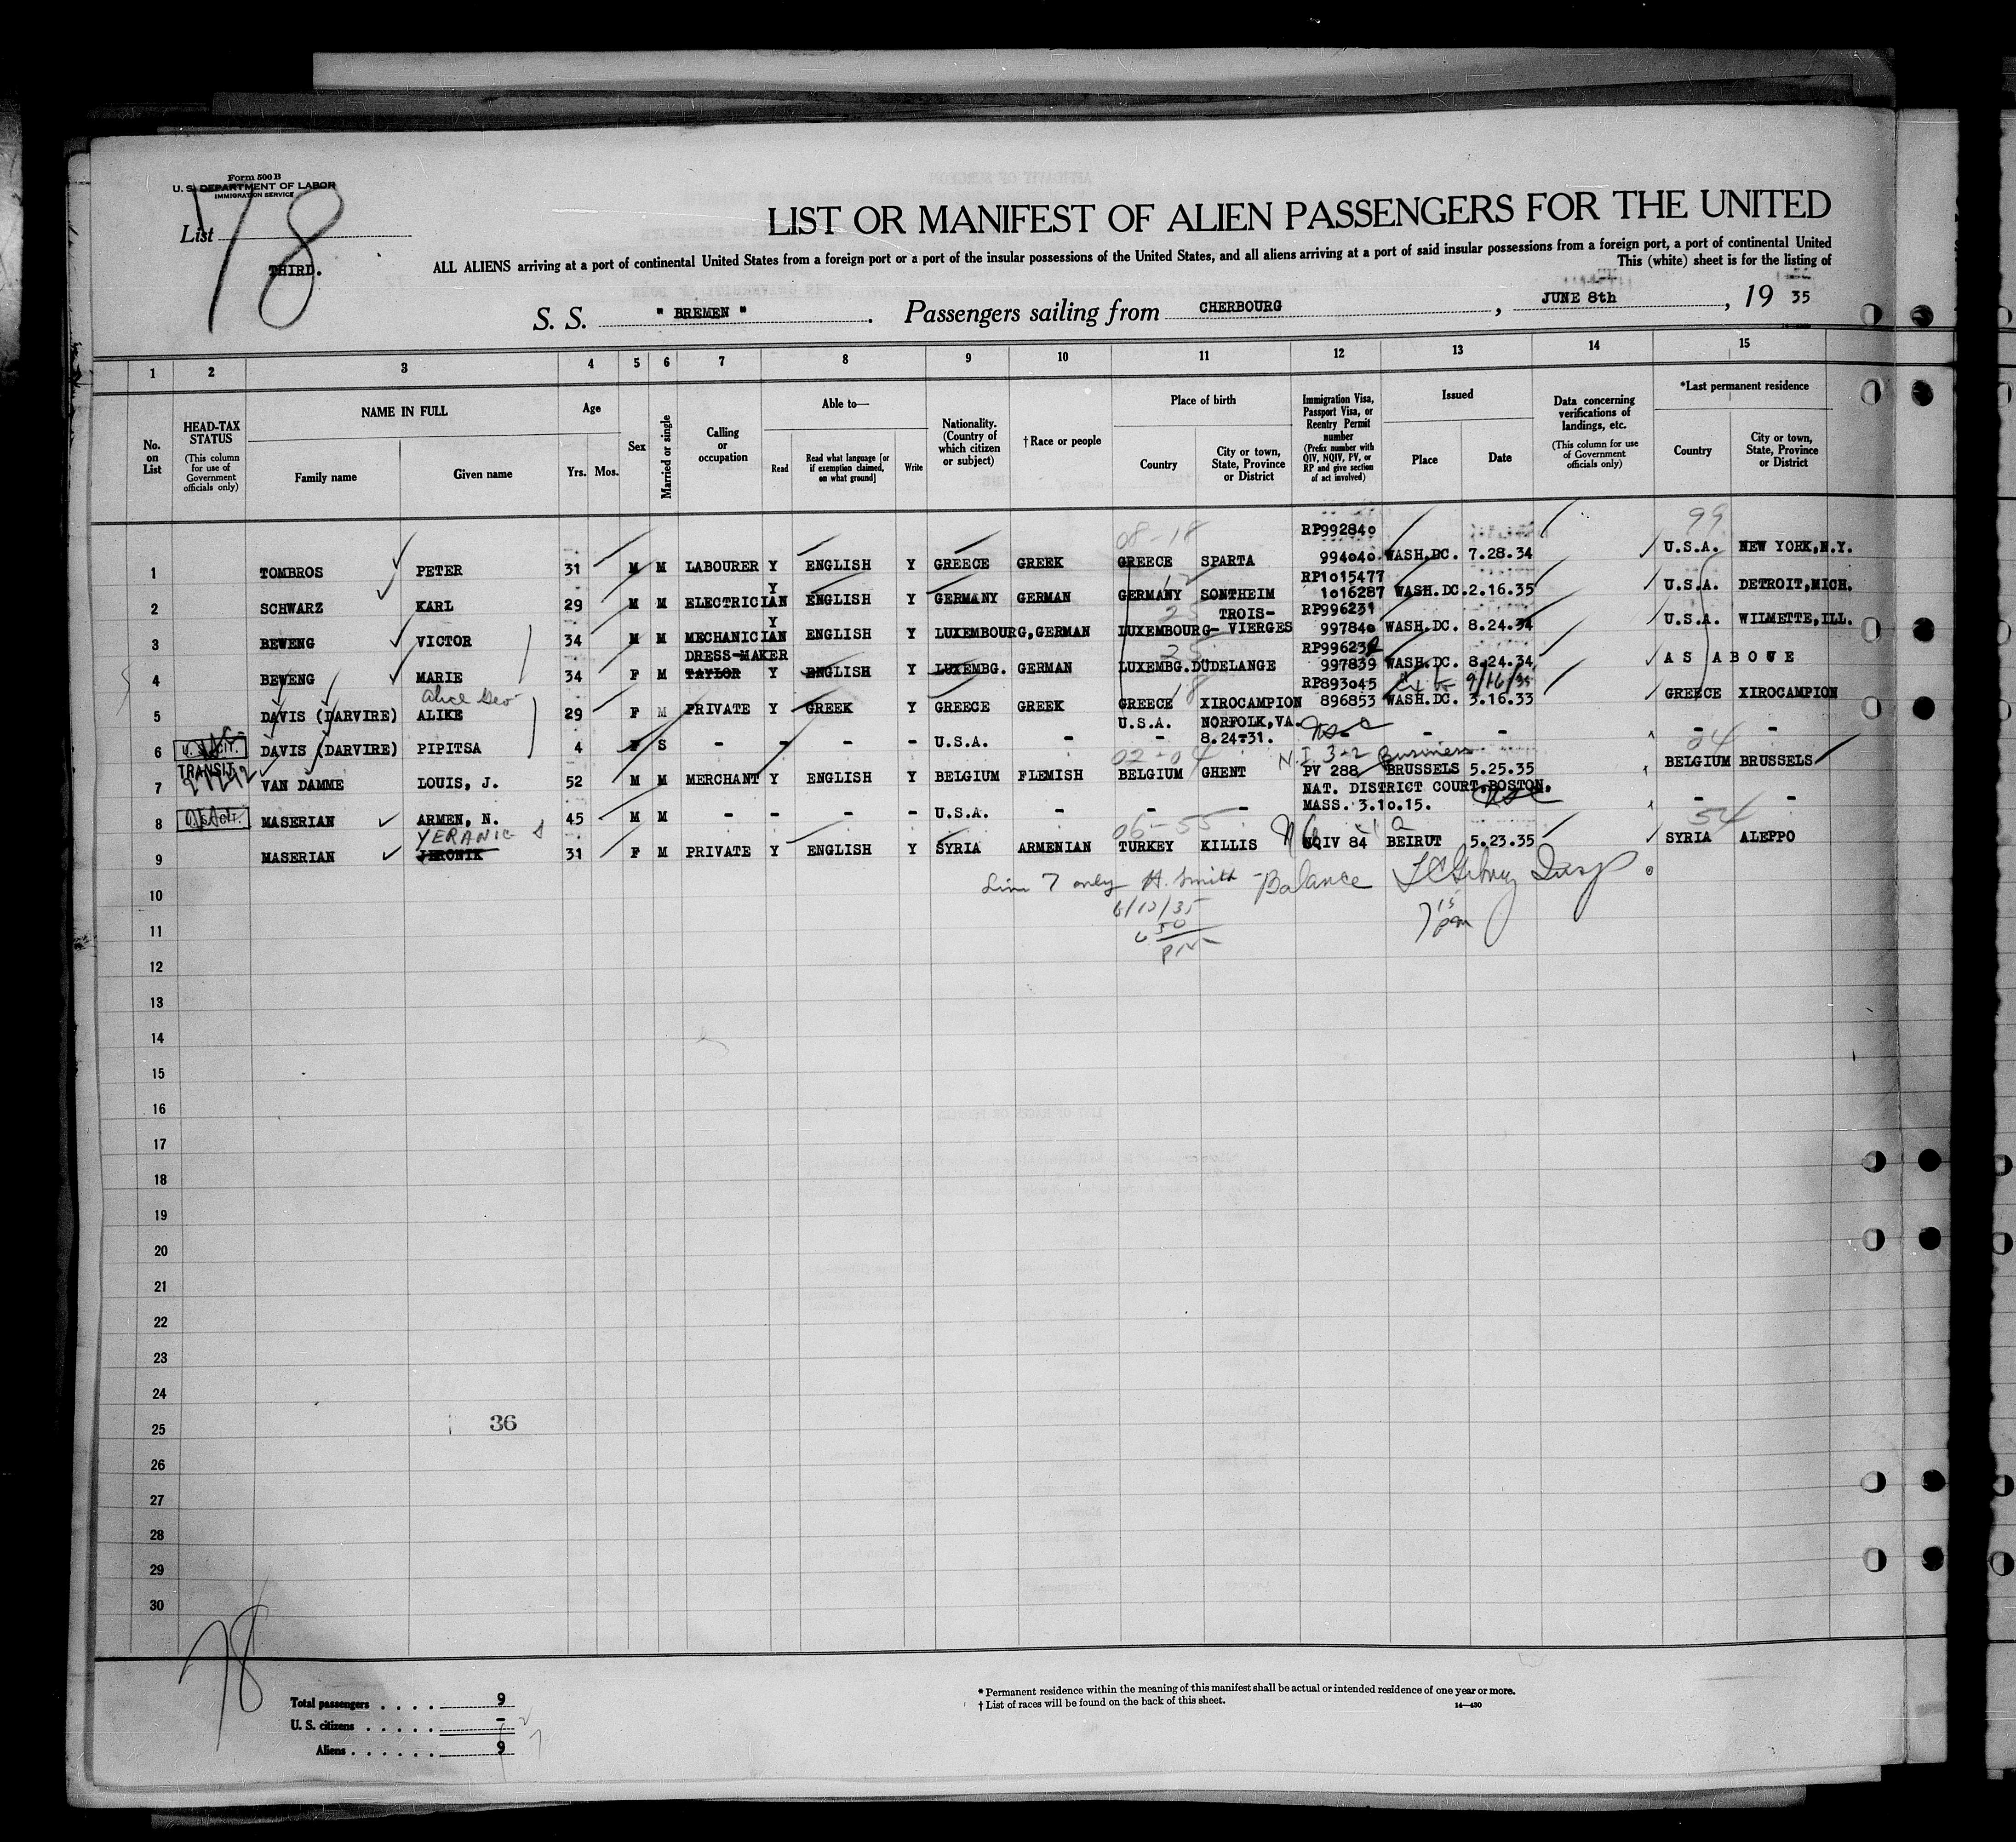 Form 500 B
U. S. DEPARTMENT OF LABOR
IMMIGRATION SERVICE
List 78
THIRD.
LIST OR MANIFEST OF ALIEN PASSENGERS FOR THE UNITED
ALL ALIENS arriving at a port of continental United States from a foreign port or a port of the insular possessions of the United States, and all aliens arriving at a port of said insular possessions from a foreign port, a port of continental United
This (white) sheet is for the listing of
S. S. " BREMEN " . Passengers sailing from CHERBOURG , JUNE 8th , 19 35
1 2 3 4 5 6 7 8 9 10 11 12 13 14 15
No. on List
HEAD-TAX STATUS
(This column for use of Government officials only)
NAME IN FULL
Family name Given name
Age
Yrs. Mos.
Sex
Married or single
Calling or occupation
Able to—
Read
Read what language [or if exemption claimed, on what ground]
Write
Nationality. (Country of which citizen or subject)
†Race or people
Place of birth
Country
City or town, State, Province or District
Immigration Visa, Passport Visa, or Reentry Permit number
(Prefix number with QIV, NQIV, PV, or RP and give section of act involved)
Issued
Place Date
Data concerning verifications of landings, etc.
(This column for use of Government officials only)
*Last permanent residence
Country
City or town, State, Province or District
08-18 RP992840 99
1 TOMBROS PETER 31 M M LABOURER Y ENGLISH Y GREECE GREEK GREECE SPARTA 994040 WASH.DC. 7.28.34 U.S.A. NEW YORK,N.Y.
RP1015477
2 SCHWARZ KARL 29 M M ELECTRICIAN Y ENGLISH Y GERMANY GERMAN GERMANY SONTHEIM 1016287 WASH.DC. 2.16.35 U.S.A. DETROIT,MICH.
25 TROIS- RP996231
3 BEWENG VICTOR 34 M M MECHANICIAN Y ENGLISH Y LUXEMBOURG, GERMAN LUXEMBOURG- VIERGES 997840 WASH.DC. 8.24.34 U.S.A. WILMETTE,ILL.
DRESS-MAKER 25 RP996232
4 BEWENG MARIE 34 F M TAYLOR Y ENGLISH Y LUXEMBG. GERMAN LUXEMBG. DUDELANGE 997839 WASH.DC. 8.24.34 AS ABOVE
Alice Geo 18 RP893045 9/16/35
5 DAVIS (DARVIRE) ALIKE 29 F M PRIVATE Y GREEK Y GREECE GREEK GREECE XIROCAMPION 896853 WASH.DC. 3.16.33 GREECE XIROCAMPION
U.S.A. NORFOLK,VA.
6 U.S. CIT. DAVIS (DARVIRE) PIPITSA 4 F S - - - - U.S.A. - - 8.24.31. - - - -
TRANSIT 02-04 N.I. 3-2 Business 04
7 VAN DAMME LOUIS, J. 52 M M MERCHANT Y ENGLISH Y BELGIUM FLEMISH BELGIUM GHENT PV 288 BRUSSELS 5.25.35 BELGIUM BRUSSELS
NAT. DISTRICT COURT, BOSTON,
8 U.S. CIT. MASERIAN ARMEN, N. 45 M M - - - - U.S.A. - - - MASS. 3.10.15. - -
YERANIC 06-55 54
9 MASERIAN JERONIK 31 F M PRIVATE Y ENGLISH Y SYRIA ARMENIAN TURKEY KILLIS NQIV 84 BEIRUT 5.23.35 SYRIA ALEPPO
Line 7 only H. Smith - Balance Insp.
6/12/35
6 50
PM
7 15
pm
10
11
12
13
14
15
16
17
18
19
20
21
22
23
24
25
26
27
28
29
30
36
78
Total passengers . . . . 9
U. S. citizens . . . . . - 2
Aliens . . . . . . 9 7
* Permanent residence within the meaning of this manifest shall be actual or intended residence of one year or more.
† List of races will be found on the back of this sheet.
14—430